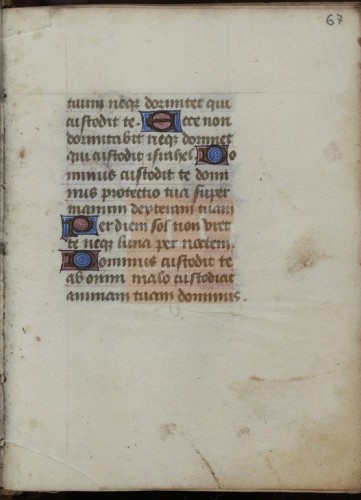 67
tuum neqz dormitet qui
custodit te. Ecce non
dormitabit neqz dormiet
qui custodit israhel. Do
minus custodit te domi
nus protectio tua super
manum dexteram tuam
Per diem sol non uret
te neqz luna per noctem.
Dominus custodit te
ab omni malo custodiat
animam tuam dominus.